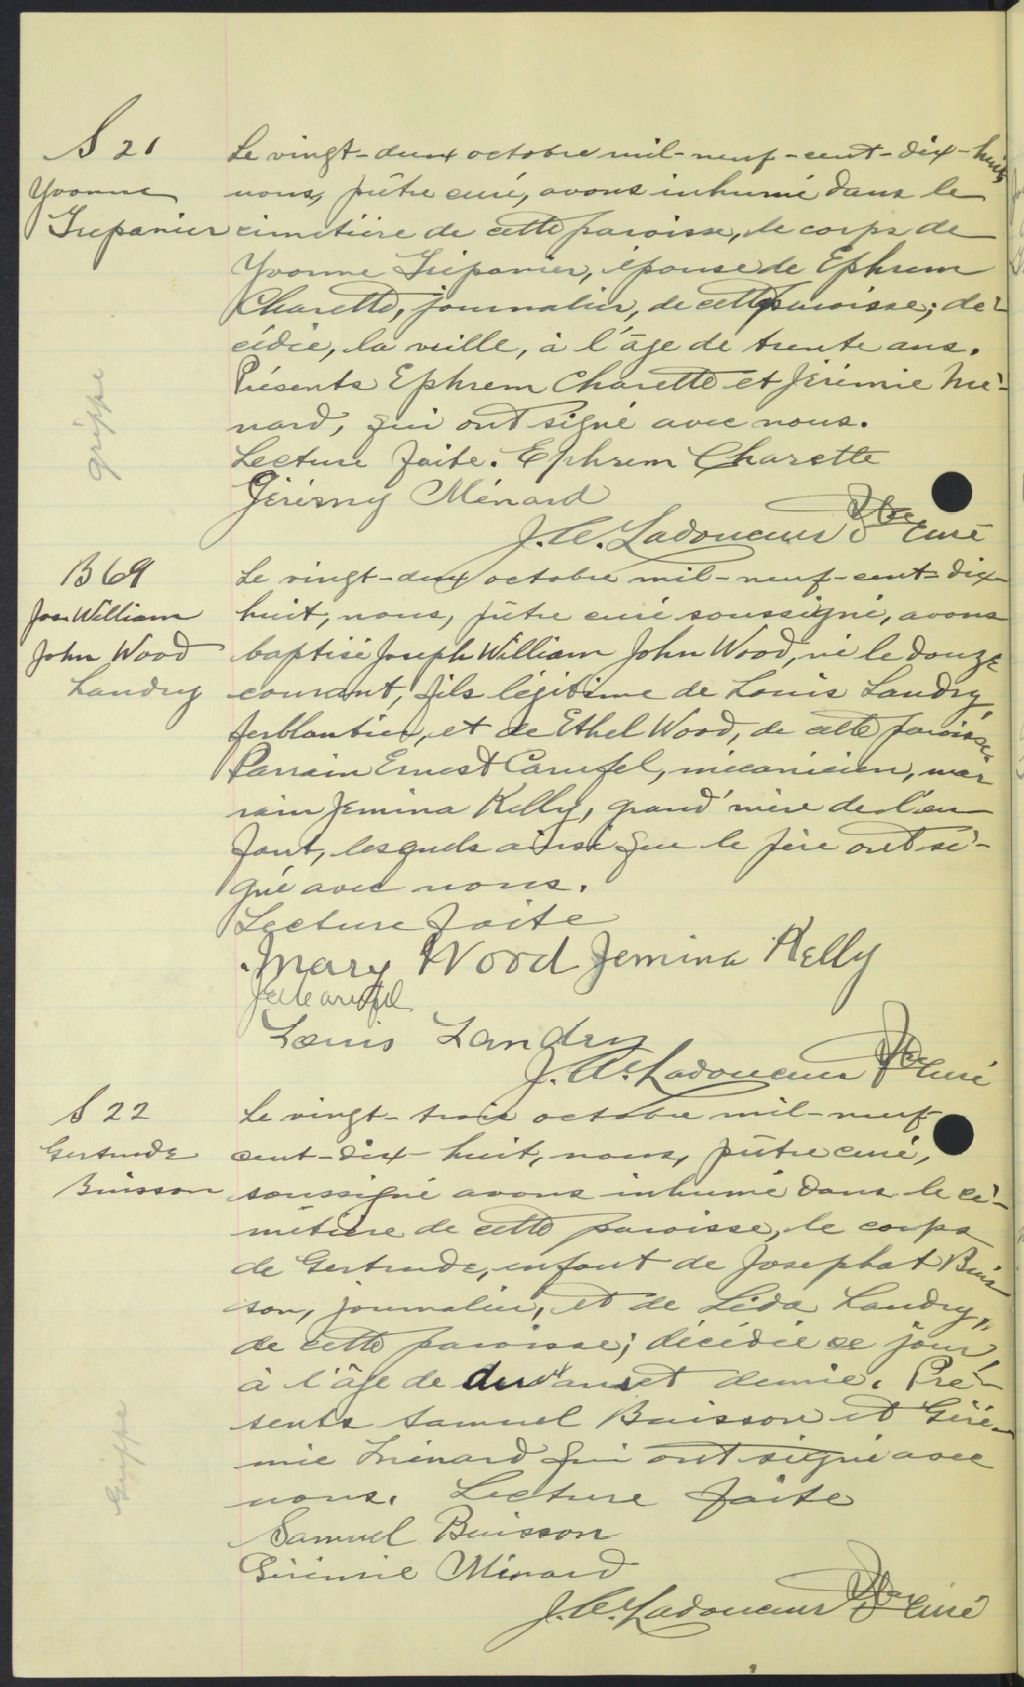 S 21
Yvonne
Trepanier
grippe
Le vingt-deux octobre mil-neuf-cent-dix-huit,
nous, prêtre curé, avons inhumé dans le
cimetière de cette paroisse, le corps de
Yvonne Trépanier, épouse de Ephrem
Charette, journalier, de cette paroisse; dé-
cédée, la veille, à l'âge de trente ans.
Présents Ephrem Charette et Jérémie Mé-
nard, qui ont signé avec nous.
Lecture faite. Ephrem Charette
Jérémy Ménard
Ladouceur Ptre Curé
B 69
Jos. William
John Wood
Landry
Le vingt-deux octobre mil-neuf-cent-dix-
huit, nous, prêtre curé soussigné, avons
baptisé Joseph William John Wood, né le douze
courant, fils légitime de Louis Landry,
ferblantier, et de Ethel Wood, de cette paroisse.
Parrain Ernest Carufel, mécanicien, mar
raine Jemina Kelly, grand'mère de l'en
fant, lesquels ainsi que le père ont si-
gné avec nous.
Lecture faite
Mary Wood Jemina Kelly
Louis Landry
Ladouceur Ptre Curé
S 22
Gertrude
Buisson
Grippe
Le vingt-trois octobre mil-neuf-
cent-dix-huit, nous, prêtre curé,
soussigné avons inhumé dans le ci-
metière de cette paroisse, le corps
de Gertrude, enfant de Josephat Buis
son, journalier, et de Léda Landry,
de cette paroisse; décédée ce jour,
à l'âge de deux ans et demie. Pré-
sents Samuel Buisson et Géré-
mie Ménard qui ont signé avec
nous. Lecture faite
Samuel Buisson
Gérémie Ménard
Ladouceur Ptre Curé